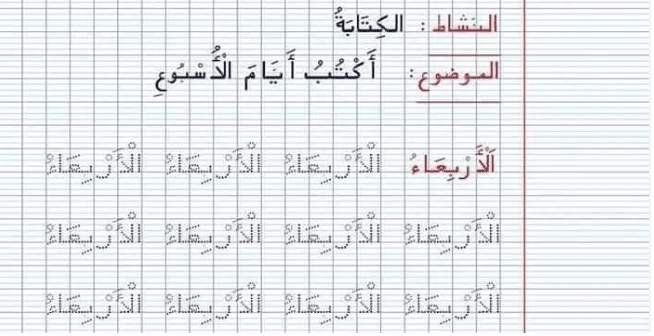 النَشاط : الكِتَابَةُ
الموضوع: أَكْتُبُ أَيَّامَ الْأُسْبُوعِ
اَلْأَرْبِعَاءُ الْأَرْبِعَاءُ الْأَرْبِعَاءُ الْأَرْبِعَاءُ
الْأَرْبِعَاءُ الْأَرْبِعَاءُ الْأَرْبِعَاءُ الْأَرْبِعَاءُ
الْأَرْبِعَاءُ الْأَرْبِعَاءُ الْأَرْبِعَاءُ الْأَرْبِعَاءُ